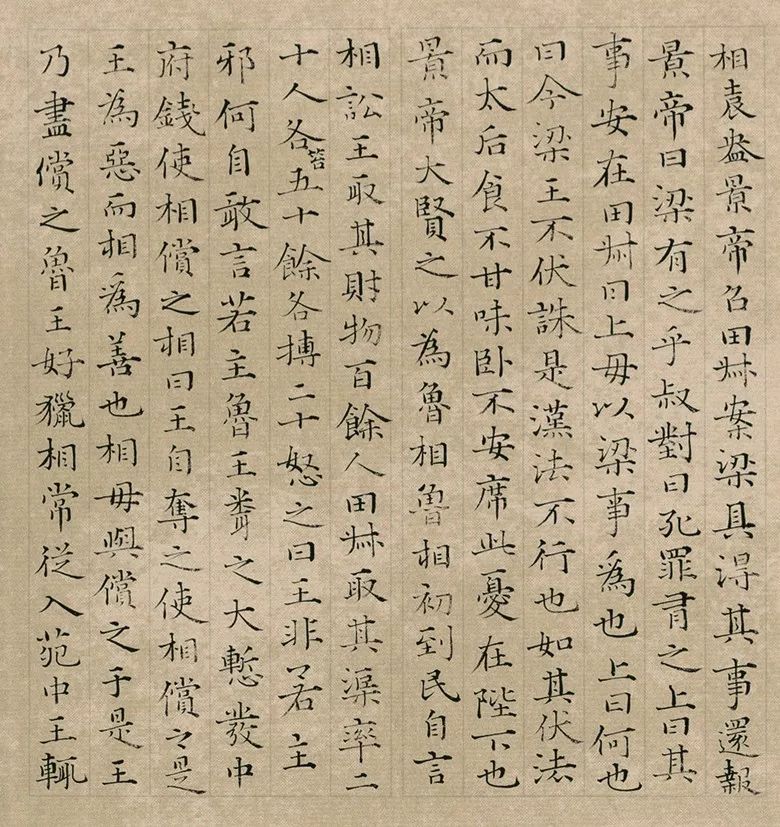 相袁盎景帝召田叔案梁具得其事還報
景帝曰梁有之乎叔對曰死罪有之上曰其
事安在田叔曰上毋以梁事為也上曰何也
曰今梁王不伏誅是漢法不行也如其伏法
而太后食不甘味卧不安席此憂在陛下也
景帝大賢之以為魯相魯相初到民自言
相訟王取其財物百餘人田叔取其渠率二
十人各笞五十餘各搏二十怒之曰王非若主
邪何自敢言若主魯王聞之大慙發中
府錢使相償之相曰王自奪之使相償之是
王為惡而相為善也相毋與償之于是王
乃盡償之魯王好獵相常從入苑中王輒